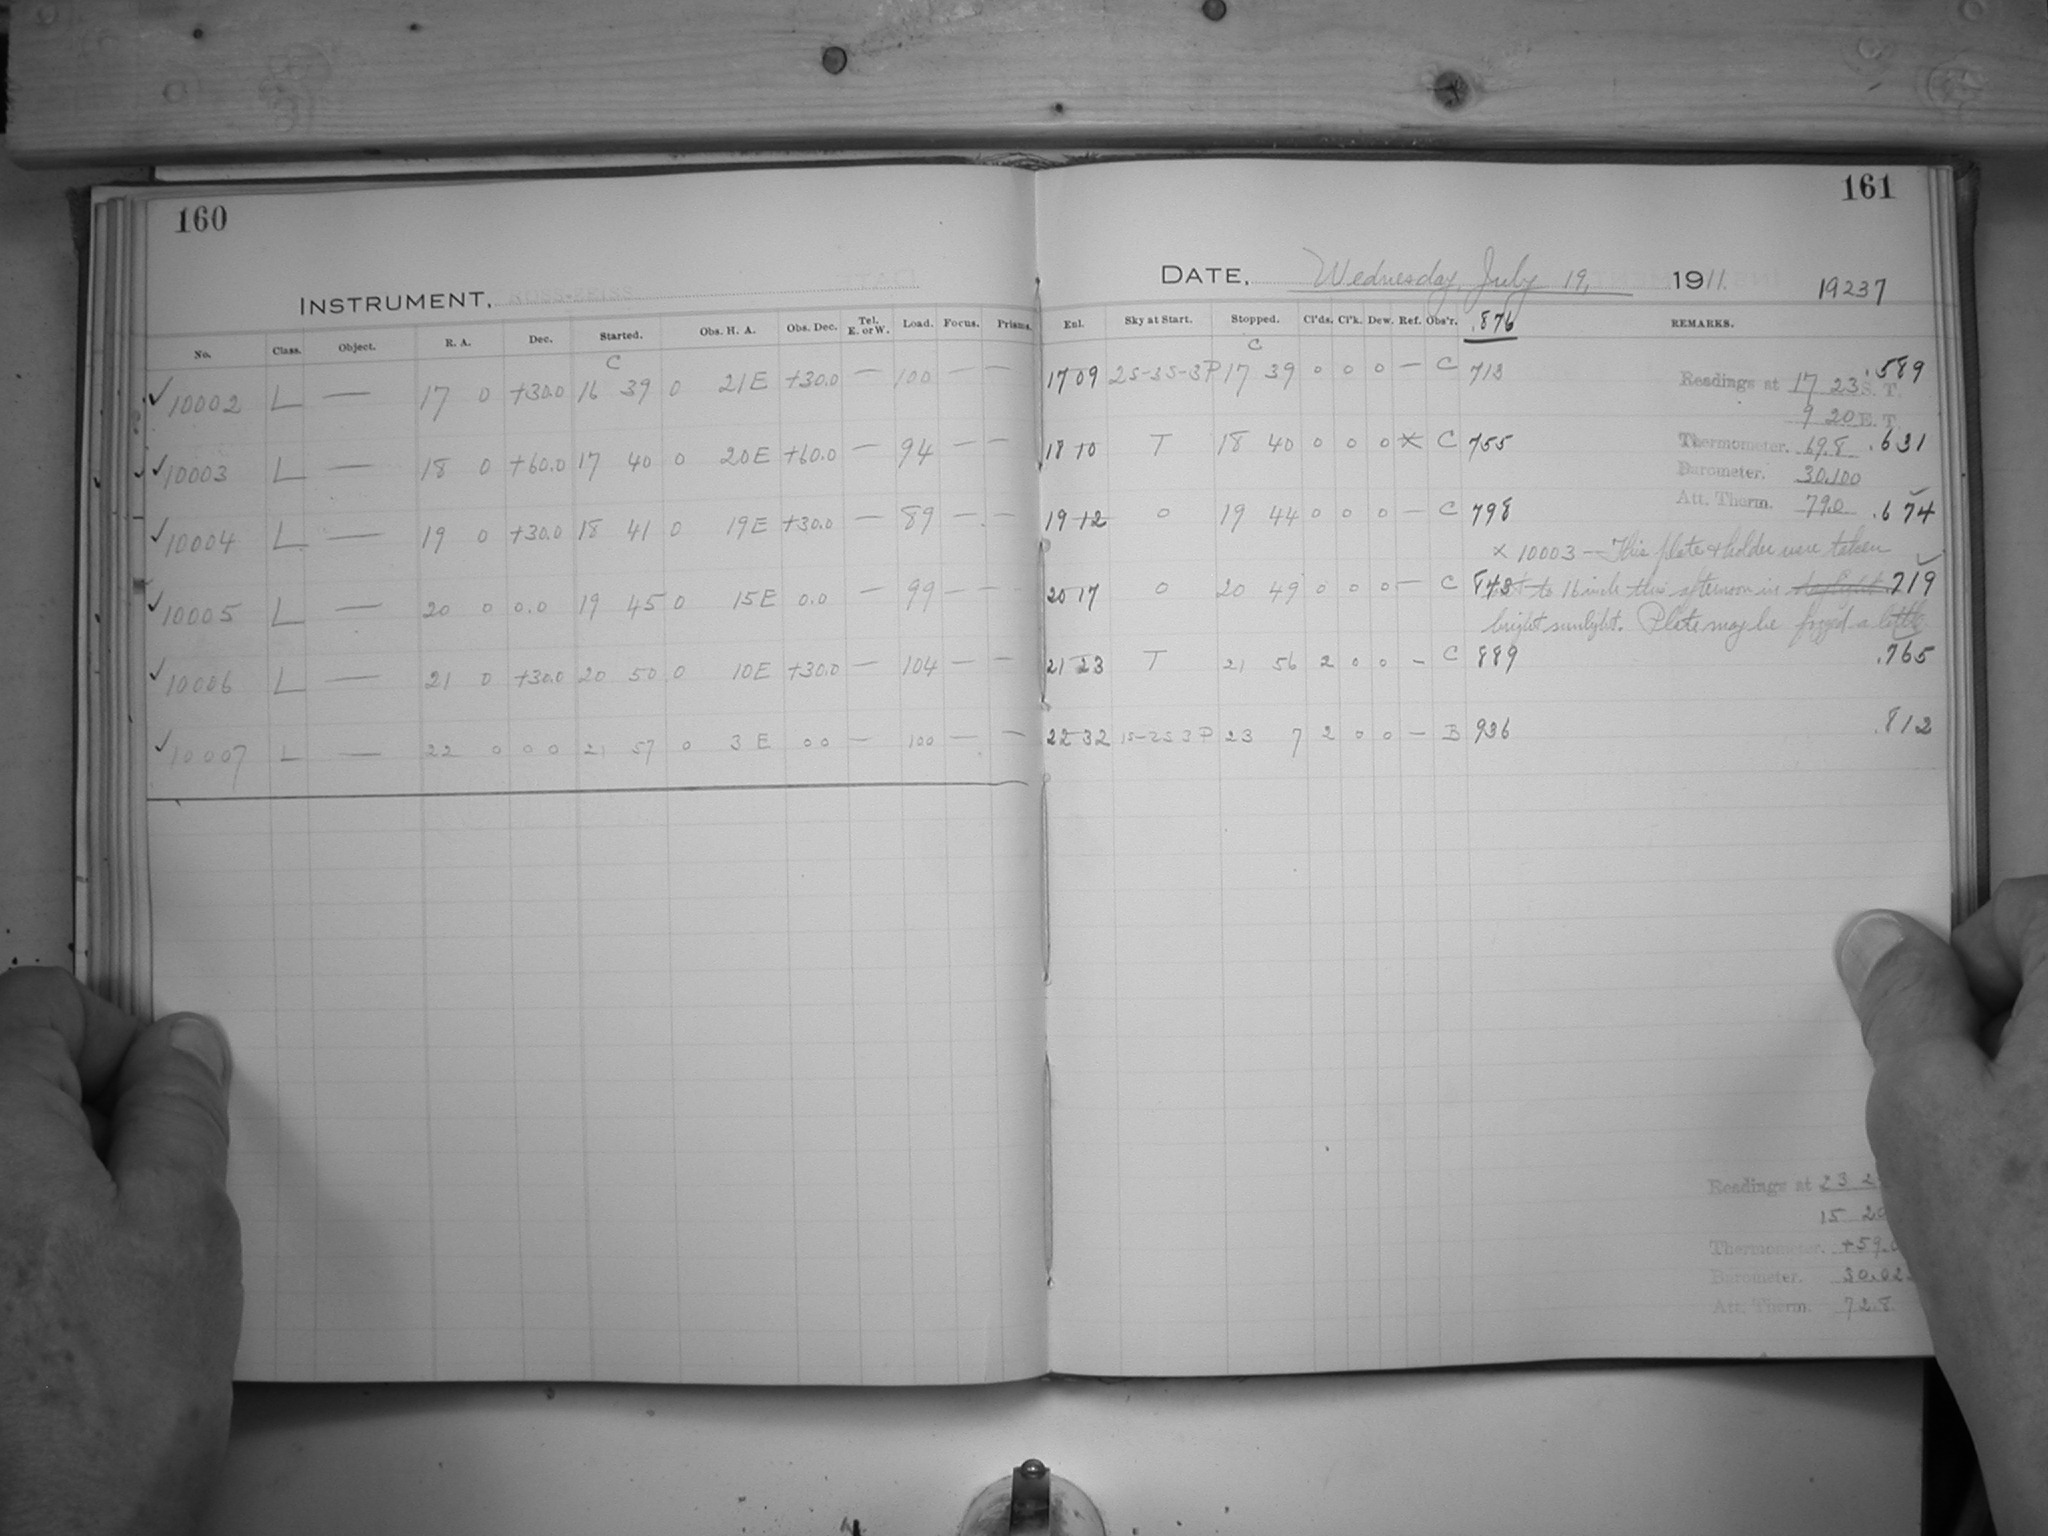 160
161
INSTRUMENT.
DATE, Wednesday, July 19, 1911. 19237
No. Class. Object. R. A. Dec. Started. Obs. H. A. Obs. Dec. Tel. E. or W. Load. Focus. Prisms.
Enl. Sky at Start. Stopped. Cl'ds. Cl'k. Dew. Ref. Obs'r. .876 REMARKS.
C
C
✓ 10002 L — 17 0 +30.0 16 39 0 21E +30.0 — 100 — — 17 09 2S-3S-3P 17 39 0 0 0 — C 713 .589
Readings at 17 23 S. T.
9 20 E. T.
✓ 10003 L — 18 0 +60.0 17 40 0 20E +60.0 — 94 — — 18 10 T 18 40 0 0 0 × C 755 .631
Thermometer. 69.8
Barometer. 30.100
Att. Therm. 79.0
✓ 10004 L — 19 0 +30.0 18 41 0 19E +30.0 — 89 — — 19 12 0 19 44 0 0 0 — C 798 .674
× 10003 — This plate & holder were taken
✓ 10005 L — 20 0 0.0 19 45 0 15E 0.0 — 99 — — 20 17 0 20 49 0 0 0 — C 843 .719
to 16 inch this afternoon in
bright sunlight. Plate may be fogged a little
✓ 10006 L — 21 0 +30.0 20 50 0 10E +30.0 — 104 — — 21 23 T 21 56 2 0 0 — C 889 .765
✓ 10007 L — 22 0 0 0 21 57 0 3 E 0 0 — 100 — — 22 32 1S-2S 3P 23 7 2 0 0 — B 936 .812
Readings at 23
15
Thermometer. +59.
Barometer. 30.02
Att. Therm. 72.8